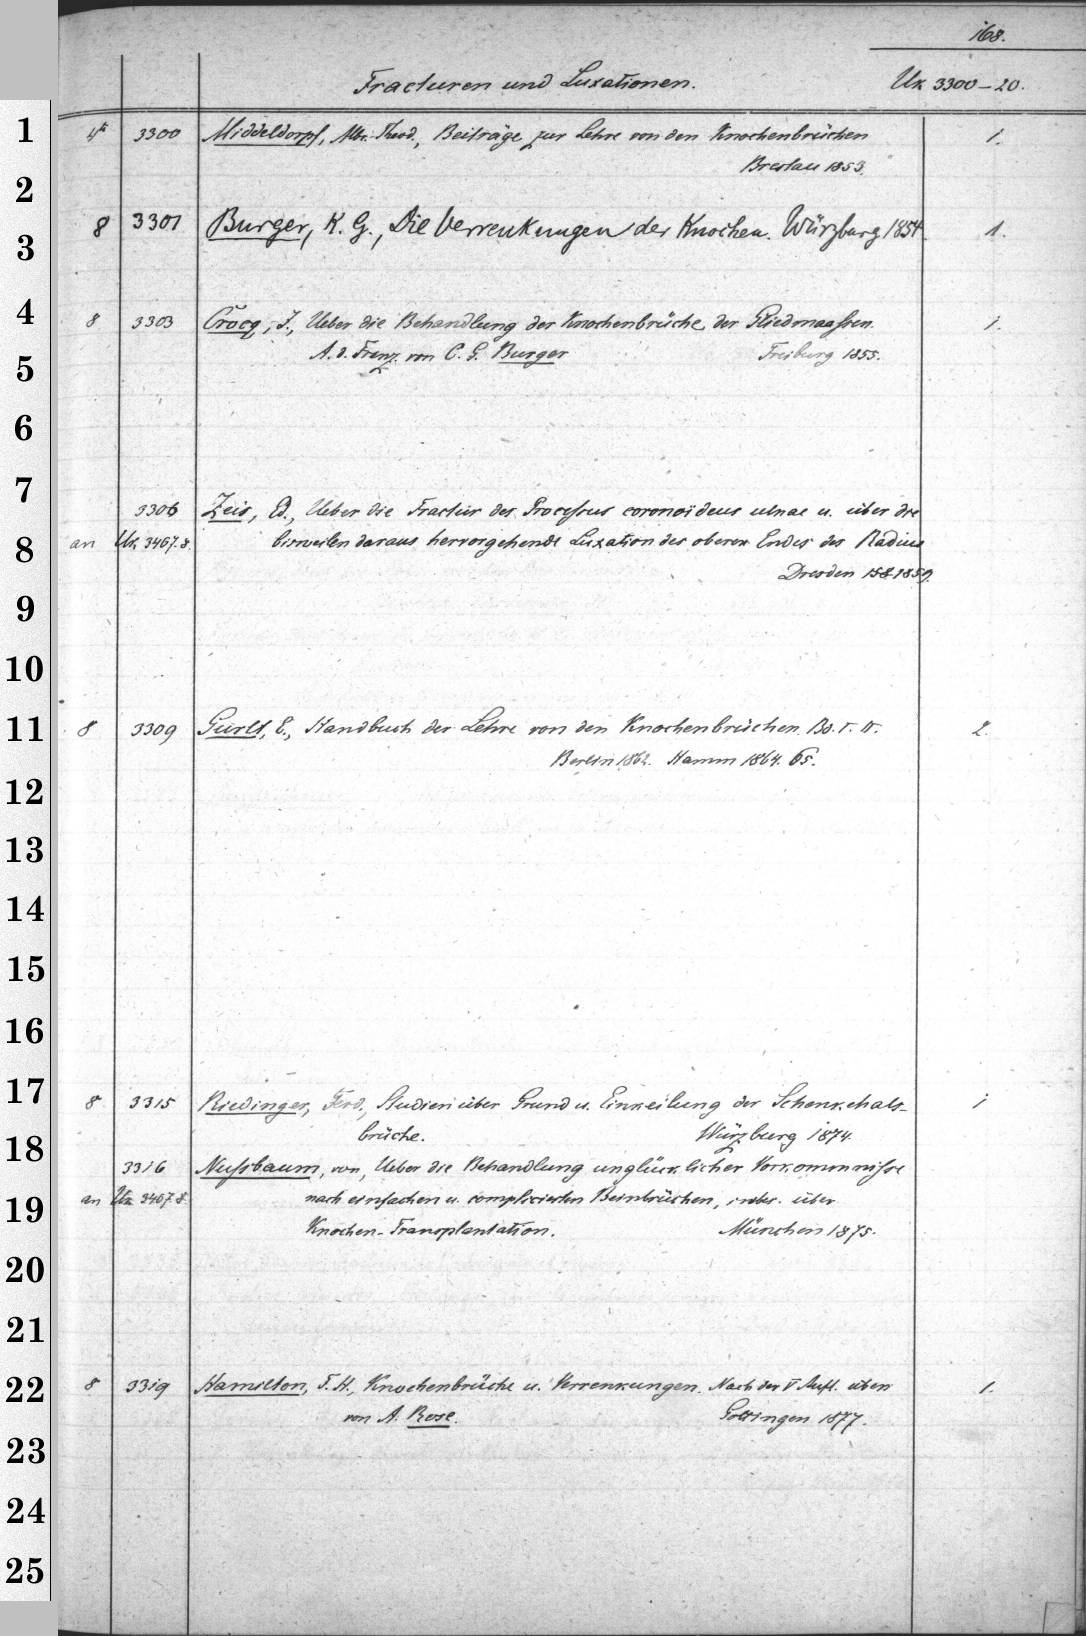 168.
Fracturen und Luxationen. Uk 3300-20.
1
4° 3300 Middeldorpf, Albr. Theod., Beiträge zur Lehre von den Knochenbrüchen 1.
Breslau 1853.
2
8 3301 Burger, K. G., Die Verrenkungen der Knochen. Würzburg 1854 1.
3
4
8 3303 Crocq, J., Ueber die Behandlung der Knochenbrüche der Gliedmaaßen. 1.
A. d. Franz. von C. G. Burger Freiburg 1855.
5
6
7
3306 Zeis, Ed., Ueber die Fractur des Processus coronoideus ulnae u. über die
8
an Uk 3467.8. bisweilen daraus hervorgehende Luxation des oberen Endes des Radius
Dresden 1859.
9
10
11
8 3309 Gurlt, E., Handbuch der Lehre von den Knochenbrüchen Bd. I. II. 2.
Berlin 1862. Hamm 1864. 65.
12
13
14
15
16
17
8 3315 Riedinger, Ferd., Studien über Grund u. Einkeilung der Schenkelhals- 1
brüche. Würzburg 1874.
18
3316 Nußbaum, von, Ueber die Behandlung unglücklicher Vorkommnisse
19
an Uk 3467.8. nach einfachen u. complicierten Beinbrüchen, insbes. über
Knochen-Transplantation. München 1875.
20
21
22
8 3319 Hamilton, F. H., Knochenbrüche u. Verrenkungen. Nach der V Aufl. übers 1.
von A. Rose. Göttingen 1877.
23
24
25